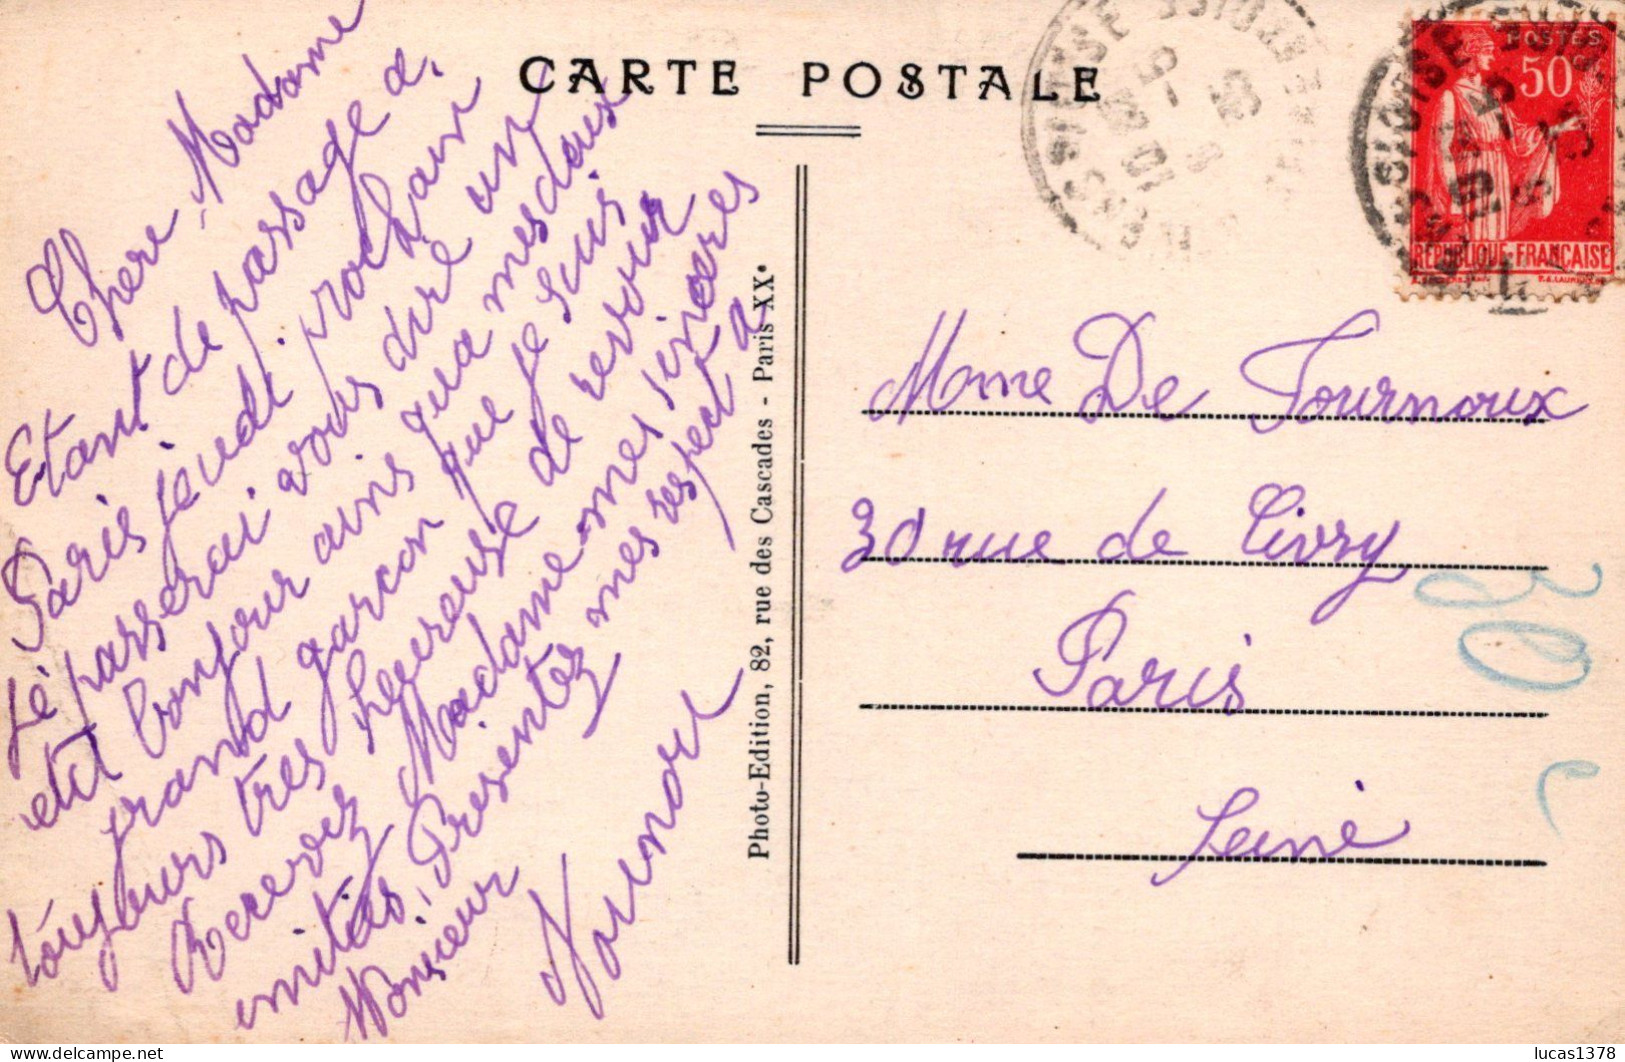 CARTE POSTALE
Chere Madame
Etant de passage a
Paris jeudi prochain
Je passerai vous dire un
petit bonjour ainsi qua mes deux
grand garçon que je suis
toujours très heureuse de revoir
Recevez Madame mes sincères
amitiés. Presentez mes respect a
Monsieur
Photo-Edition, 82, rue des Cascades - Paris XXe
POSTES
50
REPUBLIQUE-FRANÇAISE
Mme De Tournoux
30 rue de Livry
Paris
Seine
30
lucas1378